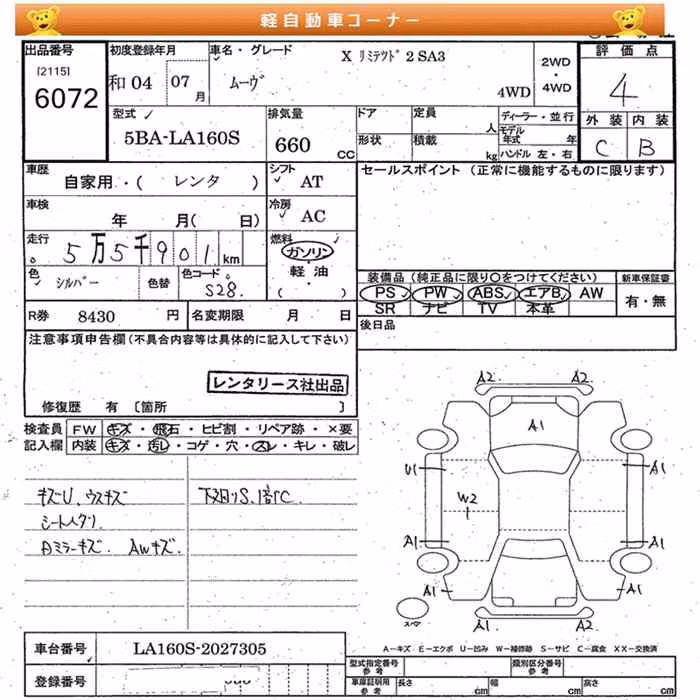 軽自動車コーナー
出品番号
[2115]
6072
初度登録年月
和04 07月
車名・グレード
X リミテツド 2 SA3
ムーヴ
4WD
2WD・4WD
評価点
4
外装 内装
C B
型式
5BA-LA160S
排気量
660 CC
ドア
定員 人
形状
積載 kg
ディーラー・並行
モデル年式 年
ハンドル 左・右
車歴
自家用・( レンタ )
シフト
AT
車検
年 月( 日)
冷房
AC
走行
5万5千901km
燃料
ガソリン・軽油
( )
色
シルバー
色替
色コード
S28
セールスポイント (正常に機能するものに限ります)
装備品 (純正品に限り○をつけてください)
PS PW ABS エアB AW
SR ナビ TV 本革
新車保証書
有・無
R券 8430 円
名変期限 月 日
後日品
注意事項申告欄(不具合内容等は具体的に記入して下さい)
レンタリース社出品
修復歴 有 [箇所 ]
検査員記入欄
FW キズ・飛石・ヒビ割・リペア跡・×要
内装 キズ・汚レ・コゲ・穴・スレ・キレ・破レ
キズU、ウスキズ
シート
ミラーキズ. AWキズ.
A2 A2
A1
U1 A1
W2
A1 A1
A1 A1
スペア
A1 A2
A-キズ E-エクボ U-凹み W-補修跡 S-サビ C-腐食 XX-交換済
車台番号
LA160S-2027305
登録番号
型式指定番号 参考
類別区分番号 参考
車庫証明用 参考
長さ cm
幅 cm
高さ cm